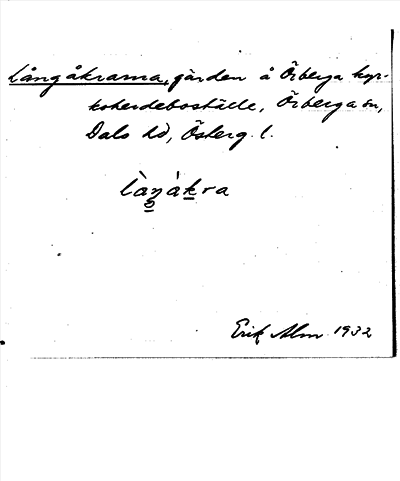 Långåkrarna, gärden å Örberga kyr-
koherdeboställe, Örberga sn,
Dals hd, Österg. l.
làŋàkra
Erik Alm 1932